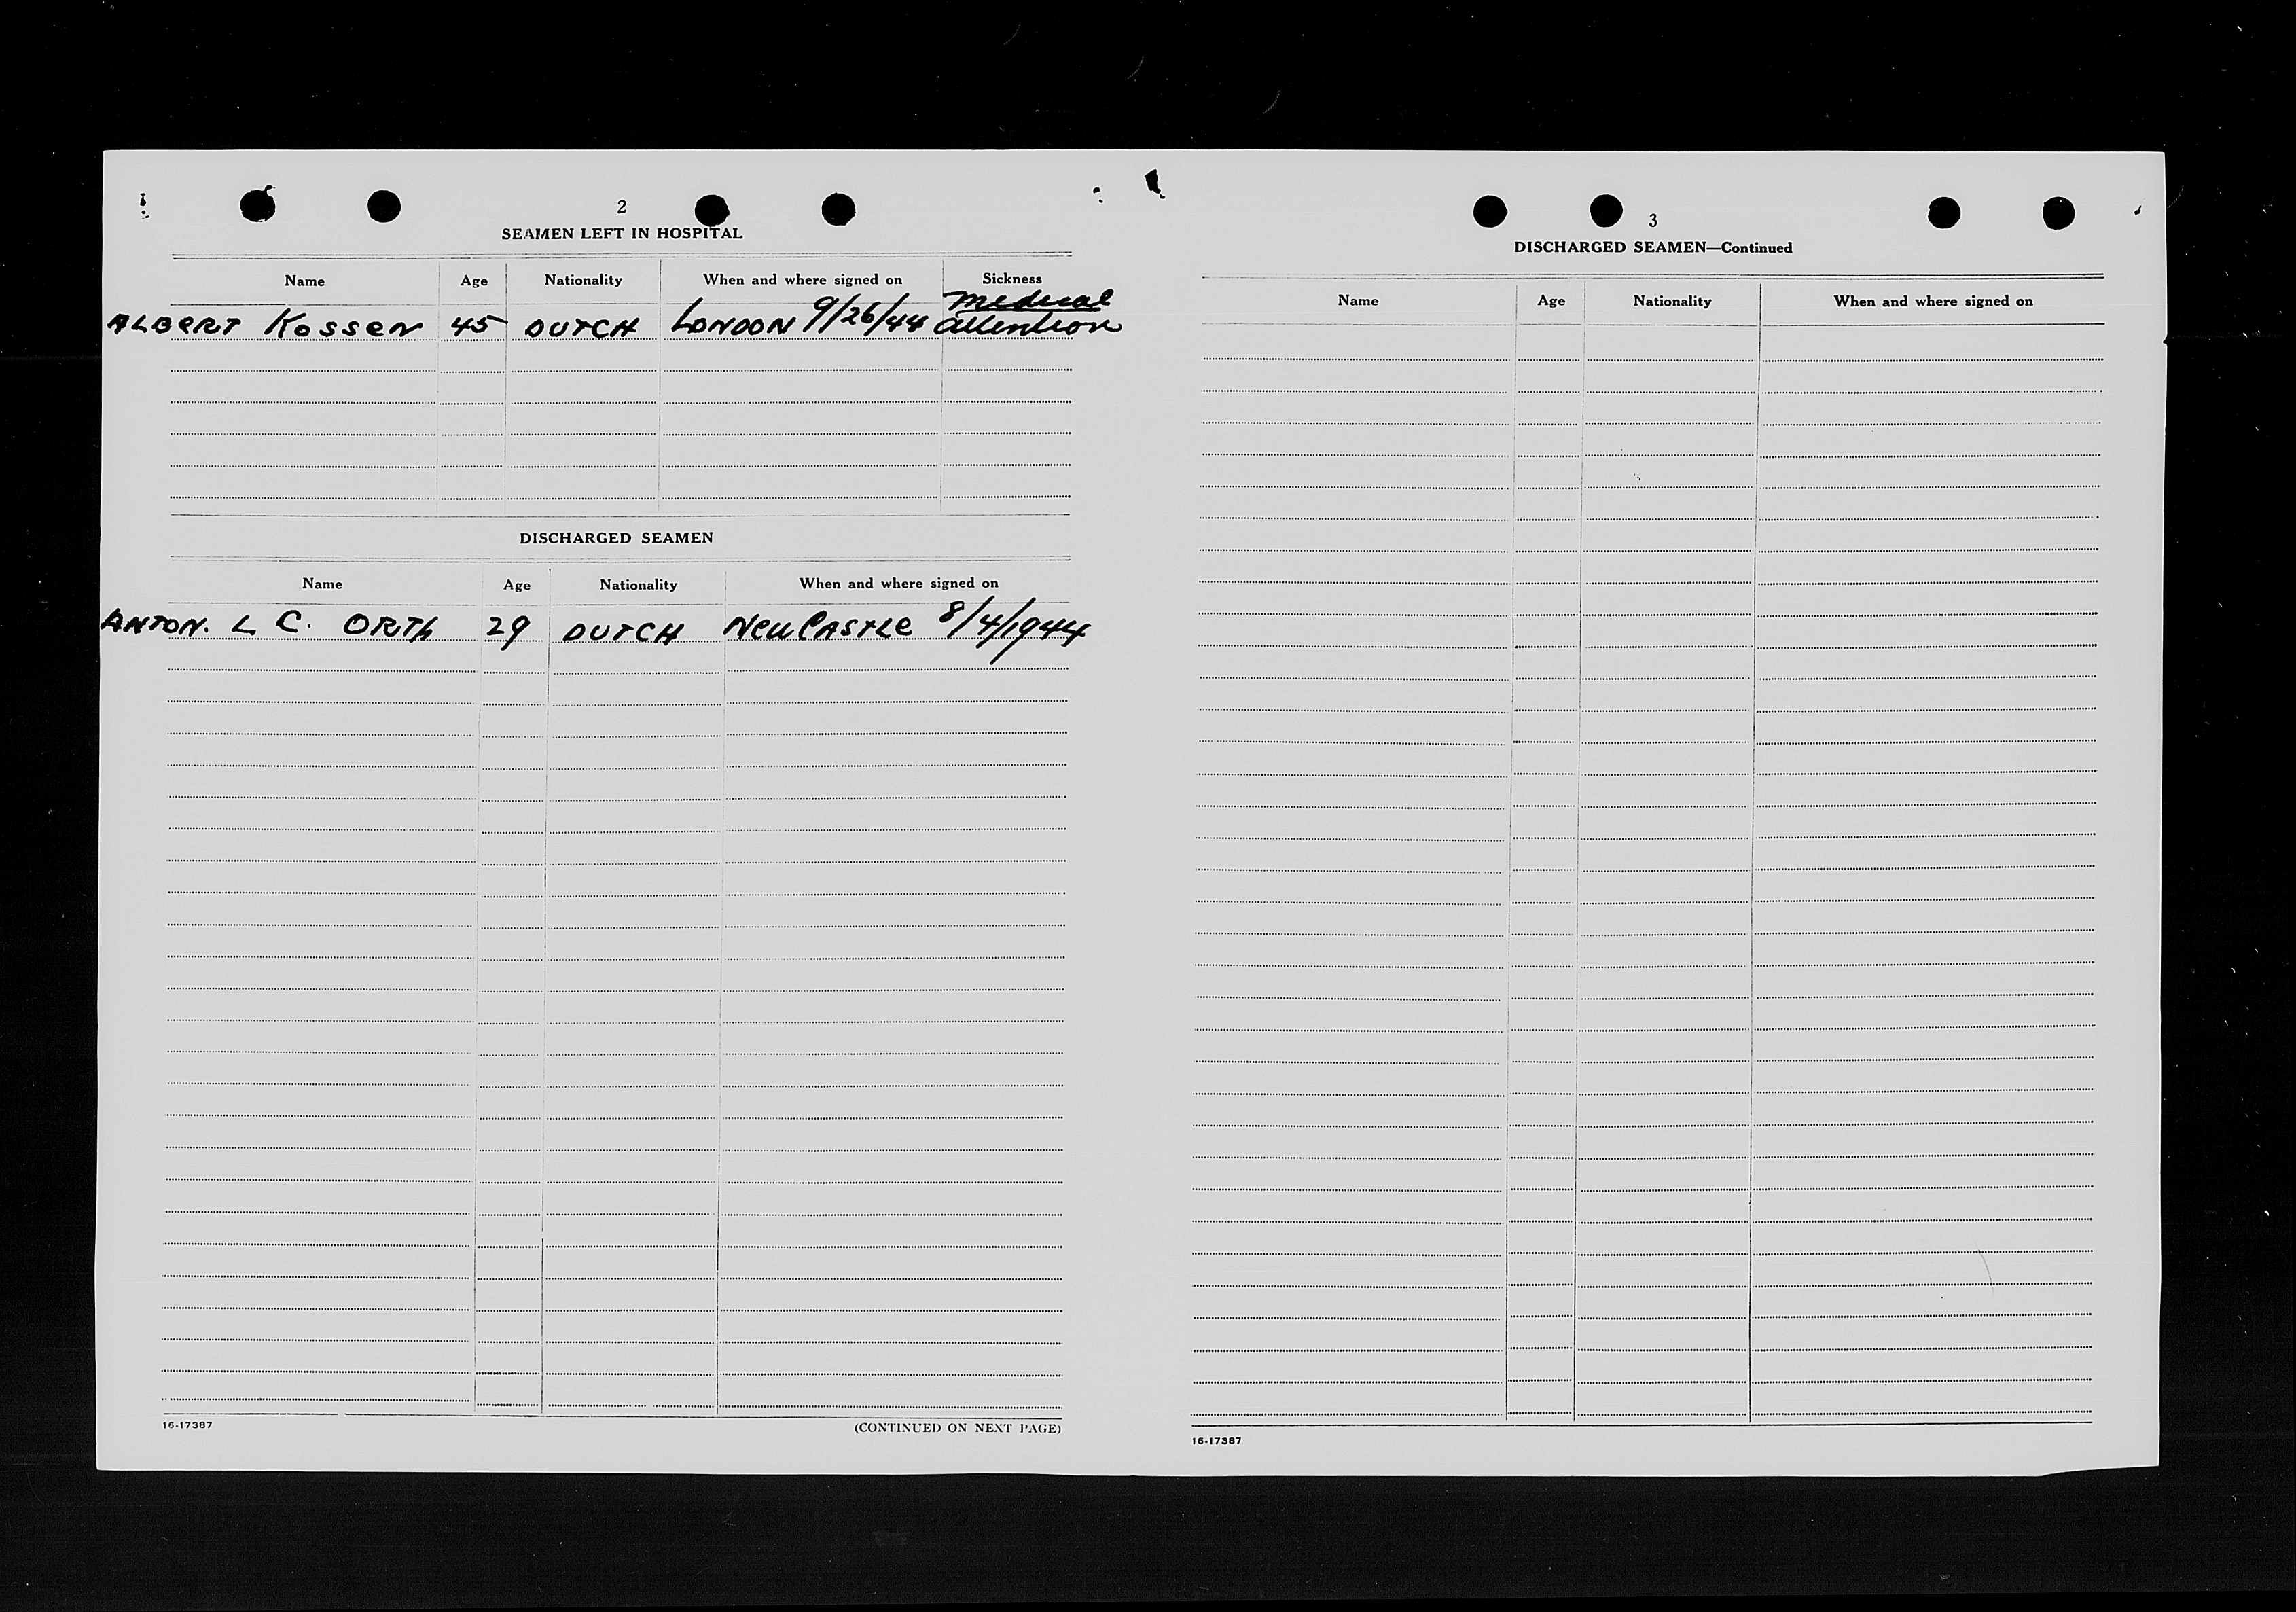 2
SEAMEN LEFT IN HOSPITAL
Name Age Nationality When and where signed on Sickness
ALBERT KOSSEN 45 DUTCH LONDON 9/26/44 medical attention
DISCHARGED SEAMEN
Name Age Nationality When and where signed on
ANTON. L C. ORTH 29 DUTCH NEWCASTLE 8/4/1944
16-17387
(CONTINUED ON NEXT PAGE)
3
DISCHARGED SEAMEN—Continued
Name Age Nationality When and where signed on
16-17387